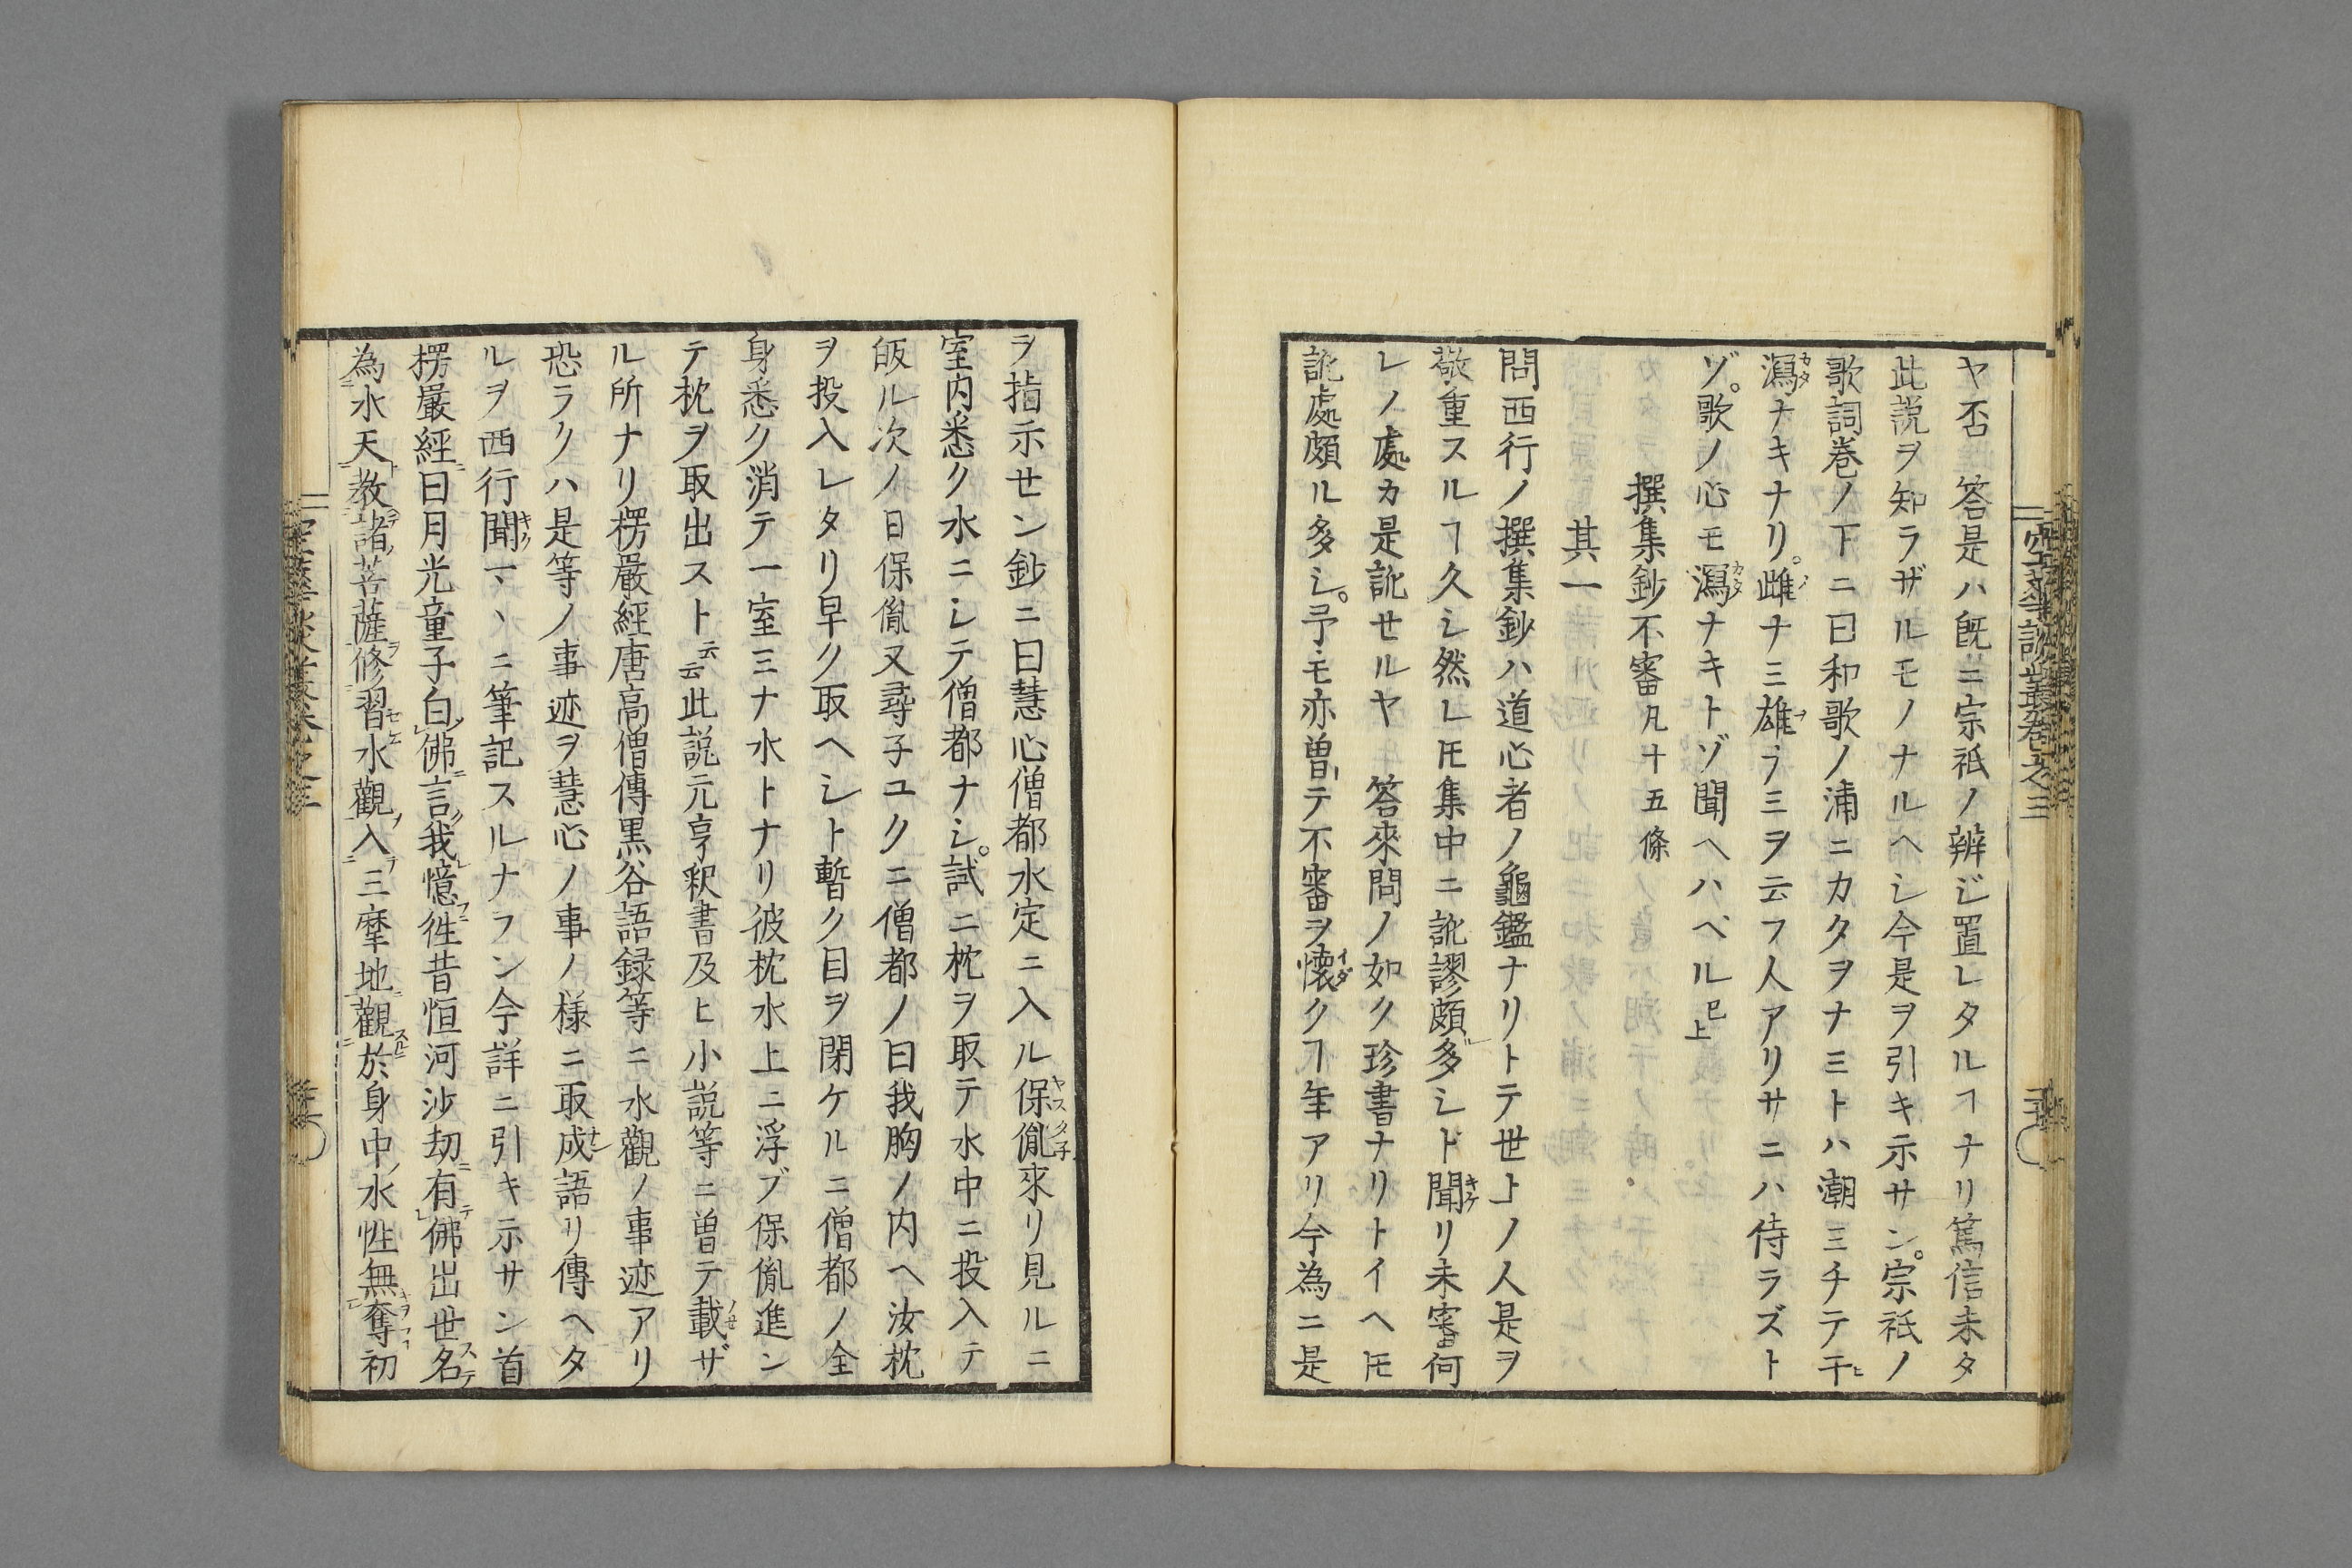 空華談叢巻之三
ヤ否　答是ハ既ニ宗祇ノ辨ジ置レタルヿナリ篤信未タ
此説ヲ知ラザルモノナルヘシ今是ヲ引キ示サン。宗祇ノ
歌詞巻ノ下ニ曰和歌ノ浦ニカタヲナミトハ潮ミチテ干
瀉ナキナリ。雌ナミ雄ラミヲ云フ人アリサニハ侍ラズト
ゾ。歌ノ心モ瀉ナキトゾ聞ヘハベル已上
撰集鈔不審凡十五條
其一
問西行ノ撰集鈔ハ道心者ノ龜鑑ナリトテ世上ノ人是ヲ
敬重スルヿ久シ然レ𪜈集中ニ訛謬頗多シト聞リ未審何
レノ處カ是訛セルヤ　答來問ノ如ク珍書ナリトイヘ𪜈
訛處頗ル多シ。予モ亦曽テ不審ヲ懐クヿ年アリ今為ニ是
ヲ指示セン鈔ニ曰慧心僧都水定ニ入ル保胤來リ見ルニ
室内悉ク水ニシテ僧都ナシ。試ニ枕ヲ取テ水中ニ投入テ
皈ル次ノ日保胤又尋子ユクニ僧都ノ曰我胸ノ内ヘ汝枕
ヲ投入レタリ早ク取ヘシト暫ク目ヲ閉ケルニ僧都ノ全
身悉ク消テ一室ミナ水トナリ彼枕水上ニ浮ブ保胤進ン
テ枕ヲ取出スト云云此説元亨釈書及ヒ小説等ニ曽テ載ザ
ル所ナリ楞嚴經唐高僧傳黒谷語録等ニ水觀ノ事迹アリ
恐ラクハ是等ノ事迹ヲ慧心ノ事ノ様ニ取成語リ傳ヘタ
ルヲ西行聞マヽニ筆記スルナラン今詳ニ引キ示サン首
楞嚴經曰月光童子白佛言我憶徃昔恒河沙劫有佛出世名
為水天教諸菩薩修習水觀入三摩地觀於身中水性無奪初